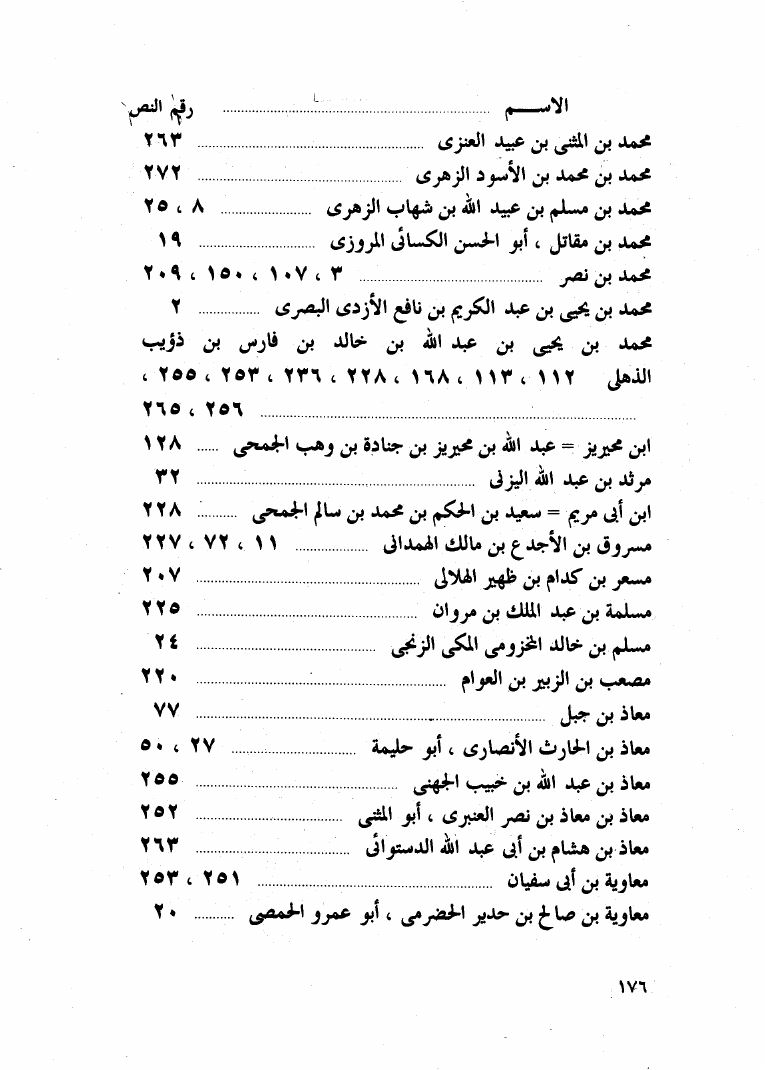 الاســـم ........ رقم النص
محمد بن المثنى بن عبيد العنزى ........ ٢٦٣
محمد بن محمد بن الأسود الزهرى ........ ٢٧٢
محمد بن مسلم بن عبيد الله بن شهاب الزهرى ........ ٨ ، ٢٥
محمد بن مقاتل ، أبو الحسن الكسائى المروزى ........ ١٩
محمد بن نصر ........ ٣ ، ١٠٧ ، ١٥٠ ، ٢٠٩
محمد بن يحيى بن عبد الكريم بن نافع الأزدى البصرى ........ ٢
محمد بن يحيى بن عبد الله بن خالد بن فارس بن ذؤيب
الذهلى ١١٢ ، ١١٣ ، ١٦٨ ، ٢٢٨ ، ٢٣٦ ، ٢٥٣ ، ٢٥٥ ،
........ ٢٥٦ ، ٢٦٥
ابن محيريز = عبد الله بن محيريز بن جنادة بن وهب الجمحى ...... ١٢٨
مرثد بن عبد الله اليزنى ........ ٣٢
ابن أبى مريم = سعيد بن الحكم بن محمد بن سالم الجمحى ........ ٢٢٨
مسروق بن الأجدع بن مالك الهمدانى ........ ١١ ، ٧٢ ، ٢٢٧
مسعر بن كدام بن ظهير الهلالى ........ ٢٠٧
مسلمة بن عبد الملك بن مروان ........ ٢٢٥
مسلم بن خالد المخزومى المكى الزنجى ........ ٢٤
مصعب بن الزبير بن العوام ........ ٢٢٠
معاذ بن جبل ........ ٧٧
معاذ بن الحارث الأنصارى ، أبو حليمة ........ ٢٧ ، ٥٠
معاذ بن عبد الله بن خبيب الجهنى ........ ٢٥٥
معاذ بن معاذ بن نصر العنبرى ، أبو المثنى ........ ٢٥٢
معاذ بن هشام بن أبى عبد الله الدستوائى ........ ٢٦٣
معاوية بن أبى سفيان ........ ٢٥١ ، ٢٥٣
معاوية بن صالح بن حدير الحضرمى ، أبو عمرو الحمصى ........ ٢٠
١٧٦